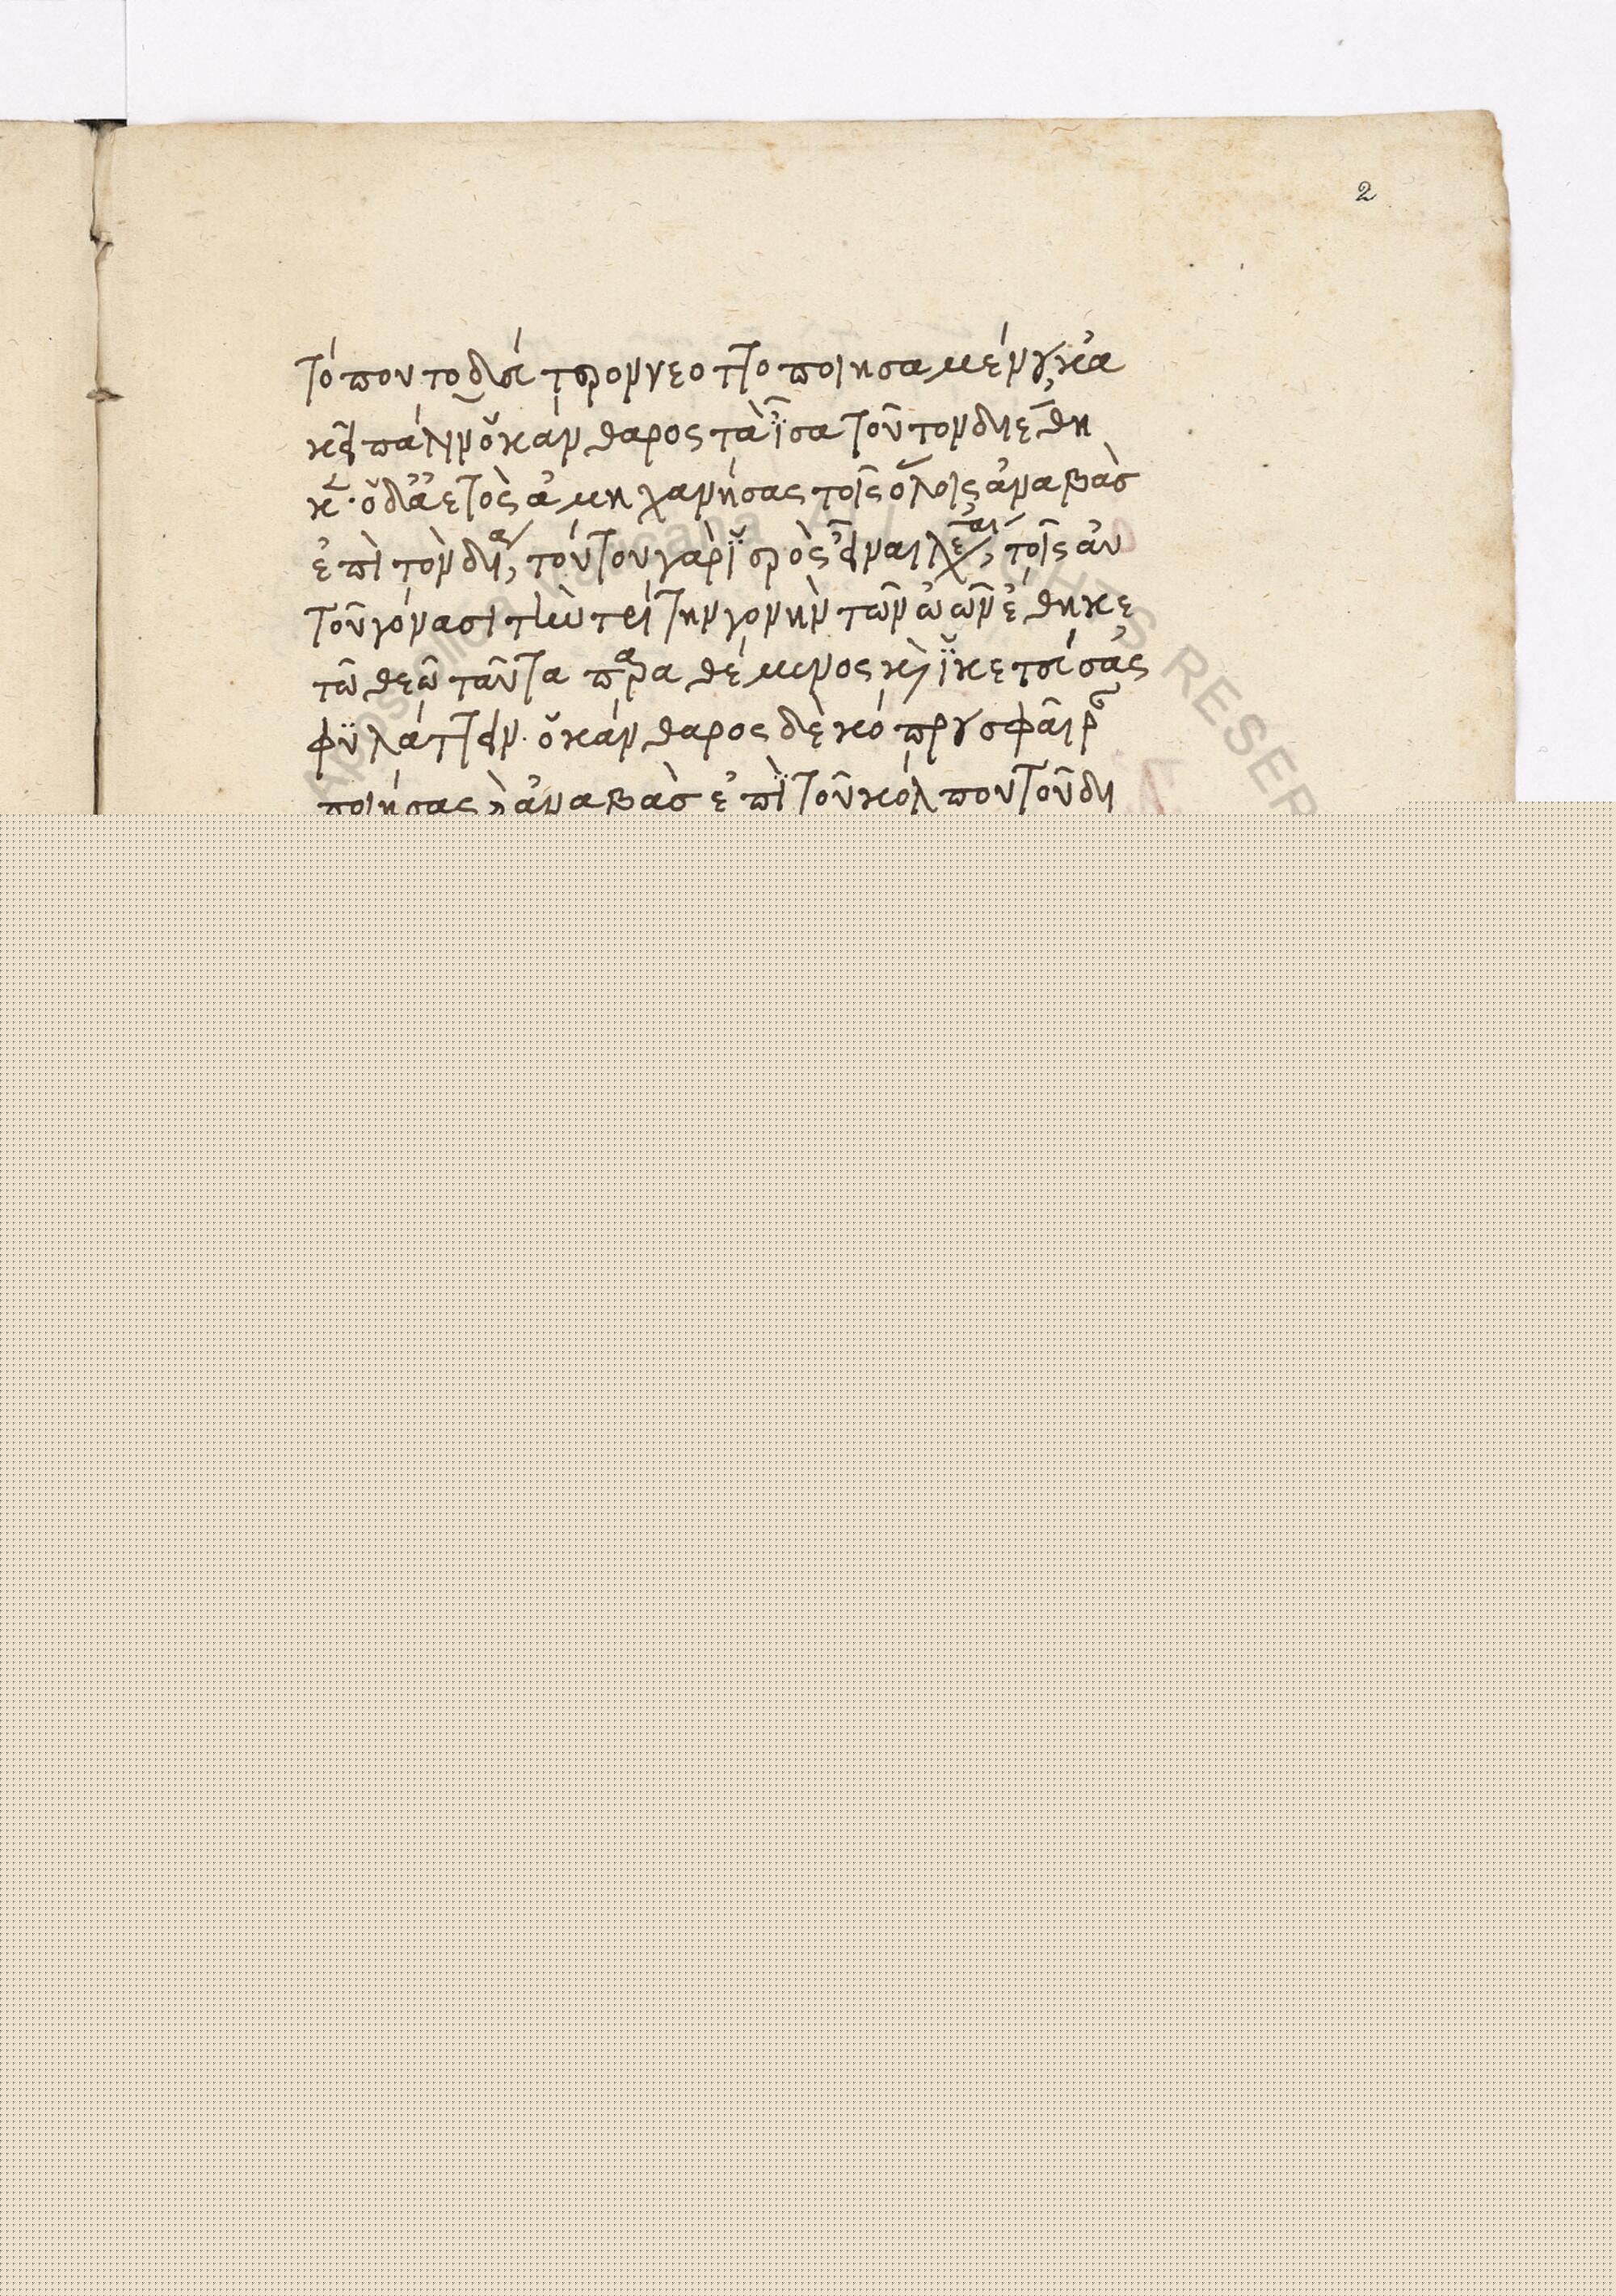 2
τόπου τὸ δεύτερον νεοττοποιησαμένου, κα
κεῖ πάλιν ὁ κάνθαρος τὰ ἴσα τοῦτον διέθη
κεν. ὁ δ' ἀετὸς ἀμηχανήσας τοῖς ὅλοις, ἀναβὰς
ἐπὶ τὸν δία, τούτου γὰρ ἱερὸς εἶναι λέγεται, τοῖς αὐ
τοῦ γόνασι τὴν τρίτην γονὴν τῶν ὠῶν ἔθηκε
τῶ θεῶ ταῦτα παραθέμενος καὶ ἱκετεύσας
φυλάττειν. ὁ κάνθαρος δὲ κόπρου σφαῖραν
ποιήσας καὶ ἀναβὰς ἐπὶ τοῦ κόλπου τοῦ δι